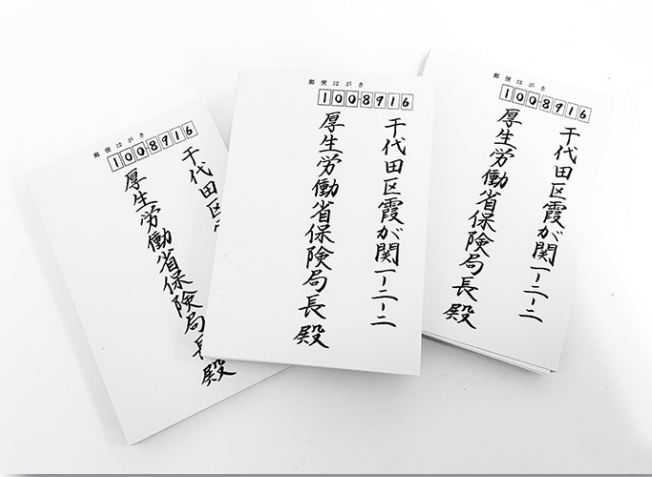 郵便はがき
100-8916
千代田区
厚生労働省保険局長殿
郵便はがき
100-8916
千代田区霞が関一-二-二
厚生労働省保険局長殿
郵便はがき
100-8916
千代田区霞が関一-二-二
厚生労働省保険局長殿